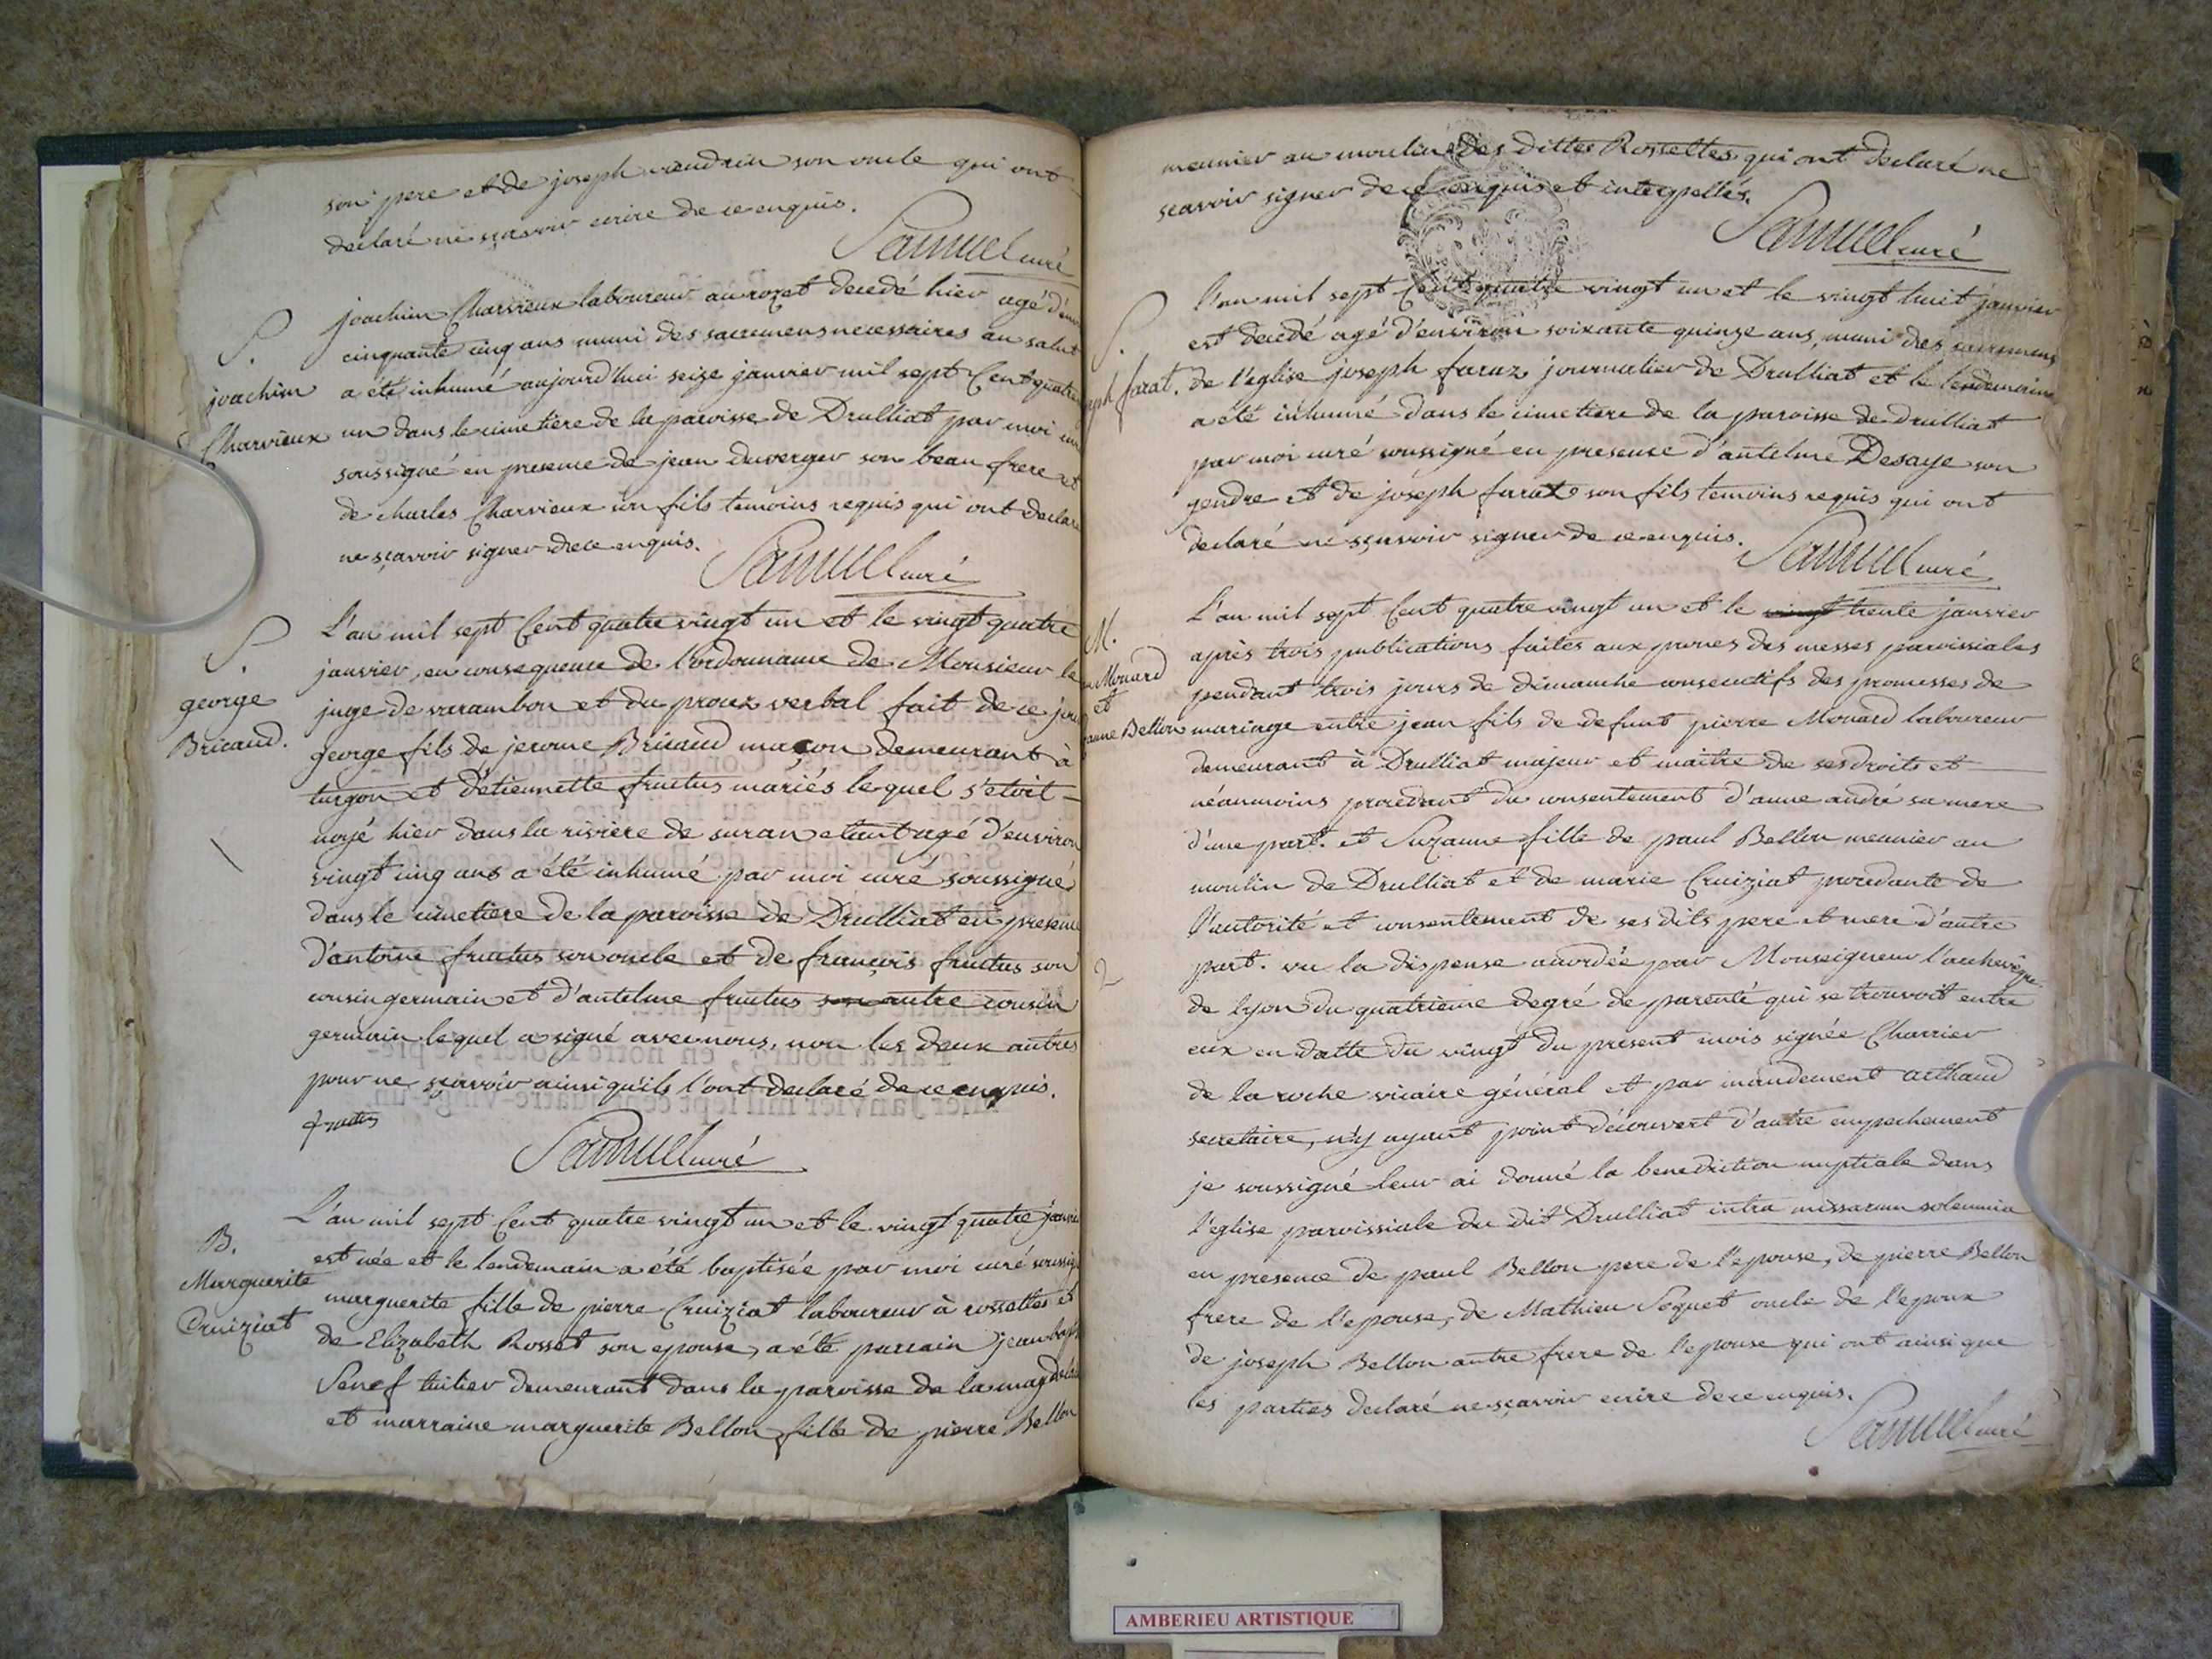 son pere et de joseph vendrin son oncle qui ont
declaré ne sçavoir ecrire de ce enquis.
Samuel curé
S.
joachim
Charvieux
joachim Charvieux laboureur au rozet decedé hier agé d'env
cinquante cinq ans muni des sacremens necessaires au salut
a été inhumé aujourd'hui seize janvier mil sept Cent quatre
un dans le cimetiere de la paroisse de Drulliat par moi curé
soussigné en presence de jean duverger son beau frere et
de charles Charvieux son fils temoins requis qui ont declaré
ne sçavoir signer de ce enquis.
Samuel curé
S.
george
Bricaud.
L'an mil sept Cent quatre vingt un et le vingt quatre
janvier, en consequence de l'ordonnance de Monsieur le
juge de varambon et du procez verbal fait de ce jour
george fils de jerome Bricaud maçon demeurant à
turgon et d'etiennette fructus mariés lequel s'etoit
noyé hier dans la riviere de suran etant agé d'environ
vingt cinq ans a été inhumé par moi curé soussigné
dans le cimetiere de la paroisse de Drulliat en presence
d'antoine fructus son oncle et de françois fructus son
cousin germain et d'antelme fructus son autre cousin
germain lequel a signé avec nous, non les deux autres
pour ne sçavoir ainsi qu'ils l'ont declaré de ce enquis.
fructus
Samuel curé
B.
Marguerite
Cruiziat
L'an mil sept Cent quatre vingt un et le vingt quatre janvier
est née et le lendemain a été baptisée par moi curé soussig
marguerite fille de pierre Cruiziat laboureur à rossettes et
de Elizabeth Rosset son epouse, a été parrain jean bapt
Senef tuilier demeurant dans la paroisse de la magdelai
et marraine marguerite Bellon fille de pierre Bellon
meunier au moulin des dittes Rossettes qui ont declaré ne
scavoir signer de ce enquis et interpellés.
Samuel curé
S.
joseph farat.
l'an mil sept Cent quatre vingt un et le vingt huit janvier
est decedé agé d'environ soixante quinze ans, muni des sacremens
de l'eglise joseph faraz journalier de Drulliat et le lendemain
a été inhumé dans le cimetiere de la paroisse de drulliat
par moi curé soussigné en presence d'antelme Desaye son
gendre et de joseph farat son fils temoins requis qui ont
declaré ne sçavoir signer de ce enquis.
Samuel curé
M.
Mouard
et
Bellon
L'an mil sept Cent quatre vingt un et le vingt trente janvier
après trois publications faites aux prones des messes paroissiales
pendant trois jours de dimanche consecutifs des promesses de
mariage entre jean fils de defunt pierre Mouard laboureur
demeurant à Drulliat majeur et maitre de ses droits et
néanmoins procedant du consentement d'anne andré sa mere
d'une part. et Suzanne fille de paul Bellon meunier au
moulin de Drulliat et de marie Cruiziat procedante de
l'autorité et consentement de ses dits pere et mere d'autre
part. vu la dispense accordée par Monseigneur l'archevêque
2
de lyon du quatrieme degré de parenté qui se trouvoit entre
eux en datte du vingt du present mois signée Charrier
de la roche vicaire général et par mandement arthaud
secretaire, n'y ayant point découvert d'autre empechement
je soussigné leur ai donné la benediction nuptiale dans
l'église paroissiale du dit Drulliat intra missarum solemnia
en presence de paul Bellon pere de l'epouse, de pierre Bellon
frere de l'epouse, de Mathieu Soquet oncle de l'epoux
de joseph Bellon autre frere de l'epouse qui ont ainsi que
les parties declaré ne sçavoir ecrire de ce enquis.
Samuel curé
AMBERIEU ARTISTIQUE